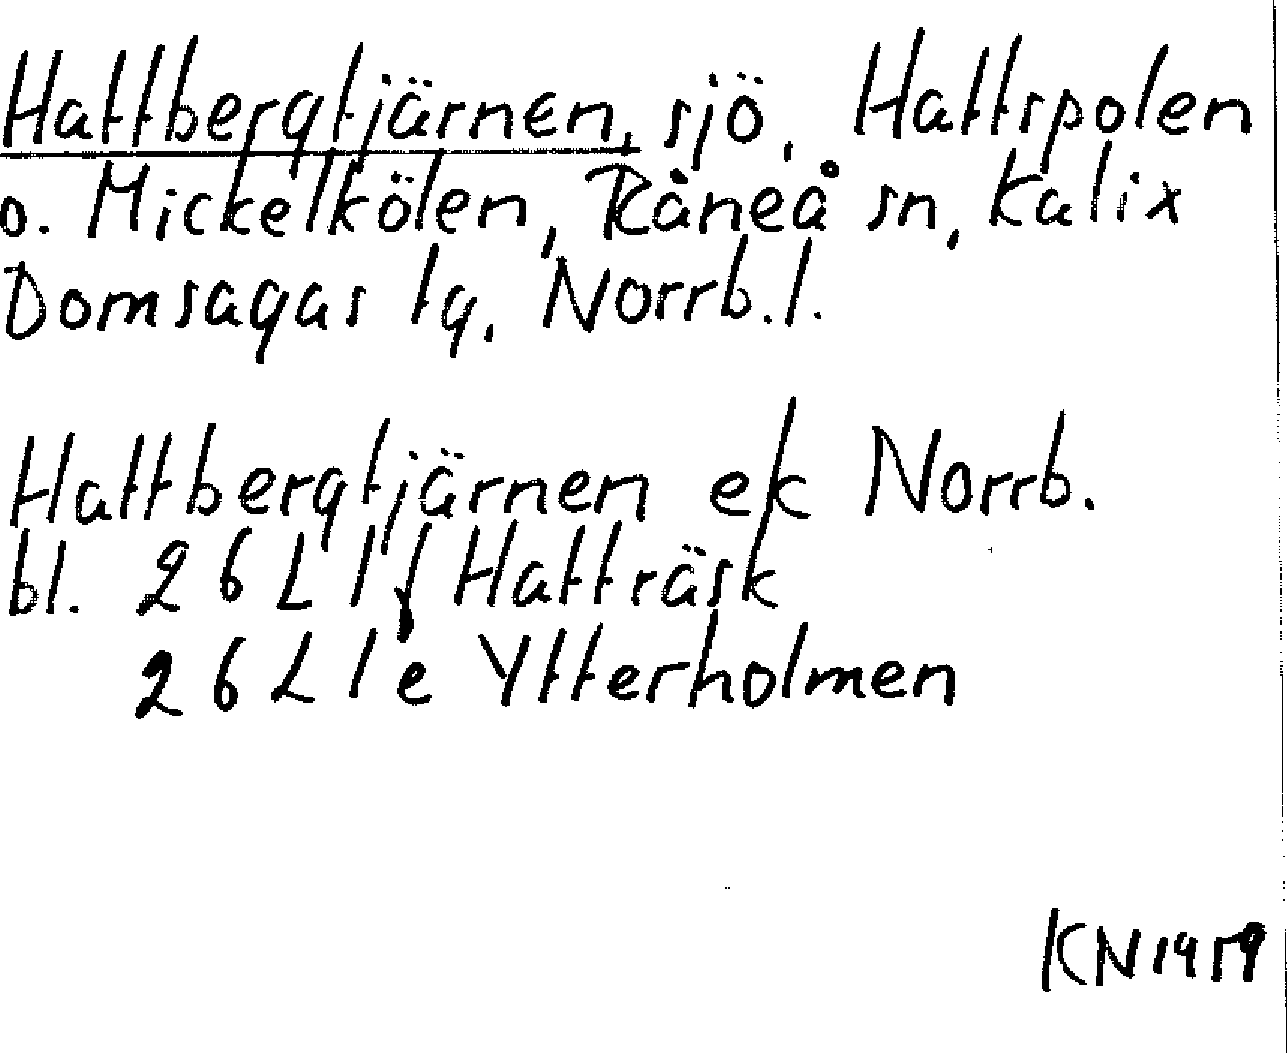 Hattbergtjärnen, sjö, Hattspolen
o. Mickelkölen, Råneå sn, Kalix
Domsagas tg, Norrb. l.
Hattbergtjärnen ek Norrb.
bl. 26L1f Hatträsk
26L1e Ytterholmen
KN1959